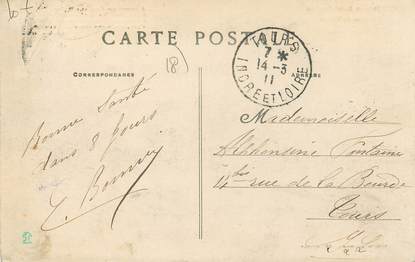 CARTE POSTALE
TOURS
7 *
14-3
11
INDRE ET LOIRE
CORRESPONDANCE
ADRESSE
18
Bonne Santé
dans 8 jours
Mademoiselle
Alphonsine Fontaine
14 bis rue de la
Tours